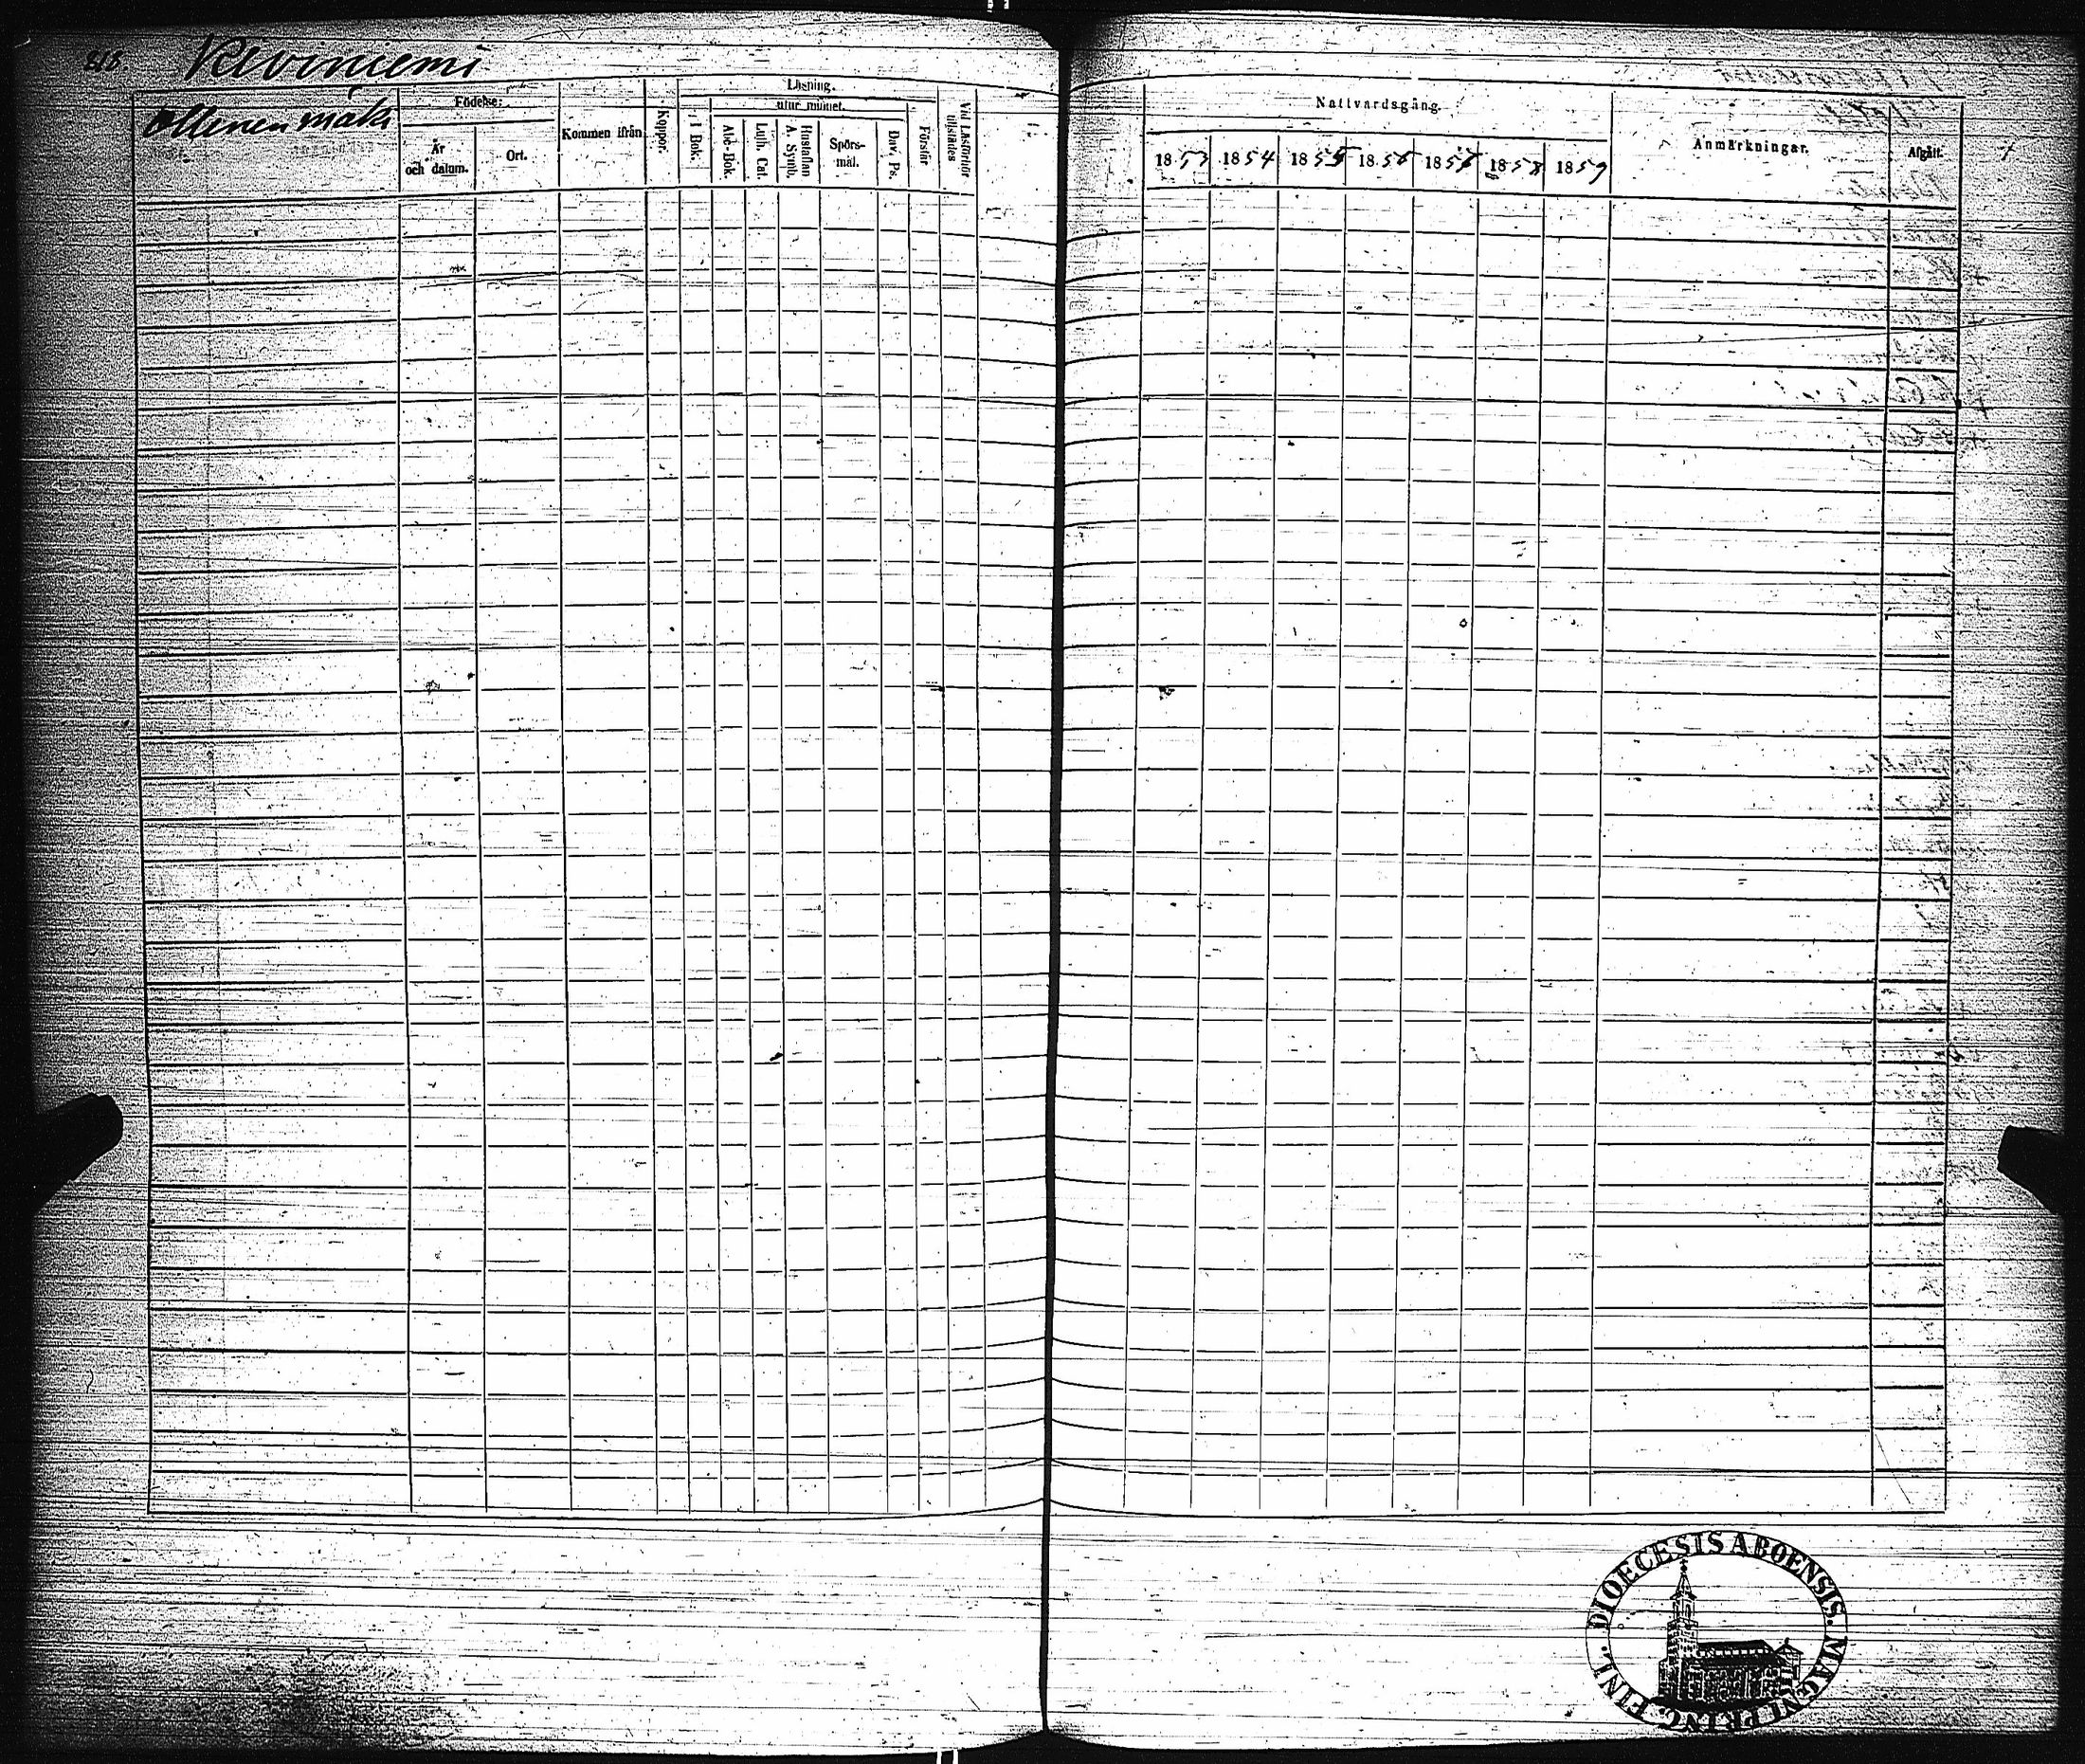 818.
Keviniemi
Ollinen mäki
Födelse:
År
och datum.
Ort.
Kommen ifrån
Koppor.
Läsning.
I Bok.
utur minnet.
Abc-Bok.
Luth. Cat.
Hustaflan
A. Symb.
Spörs-
mål.
Dav. Ps.
Förstår
Vid Läsförhör
tillstädes
Nattvardsgång.
1853
1854
1855
1856
1858
1859
Anmärkningar.
Afgått.
DIOECESIS ABOENSIS. MAGNI PRINC. FINL.